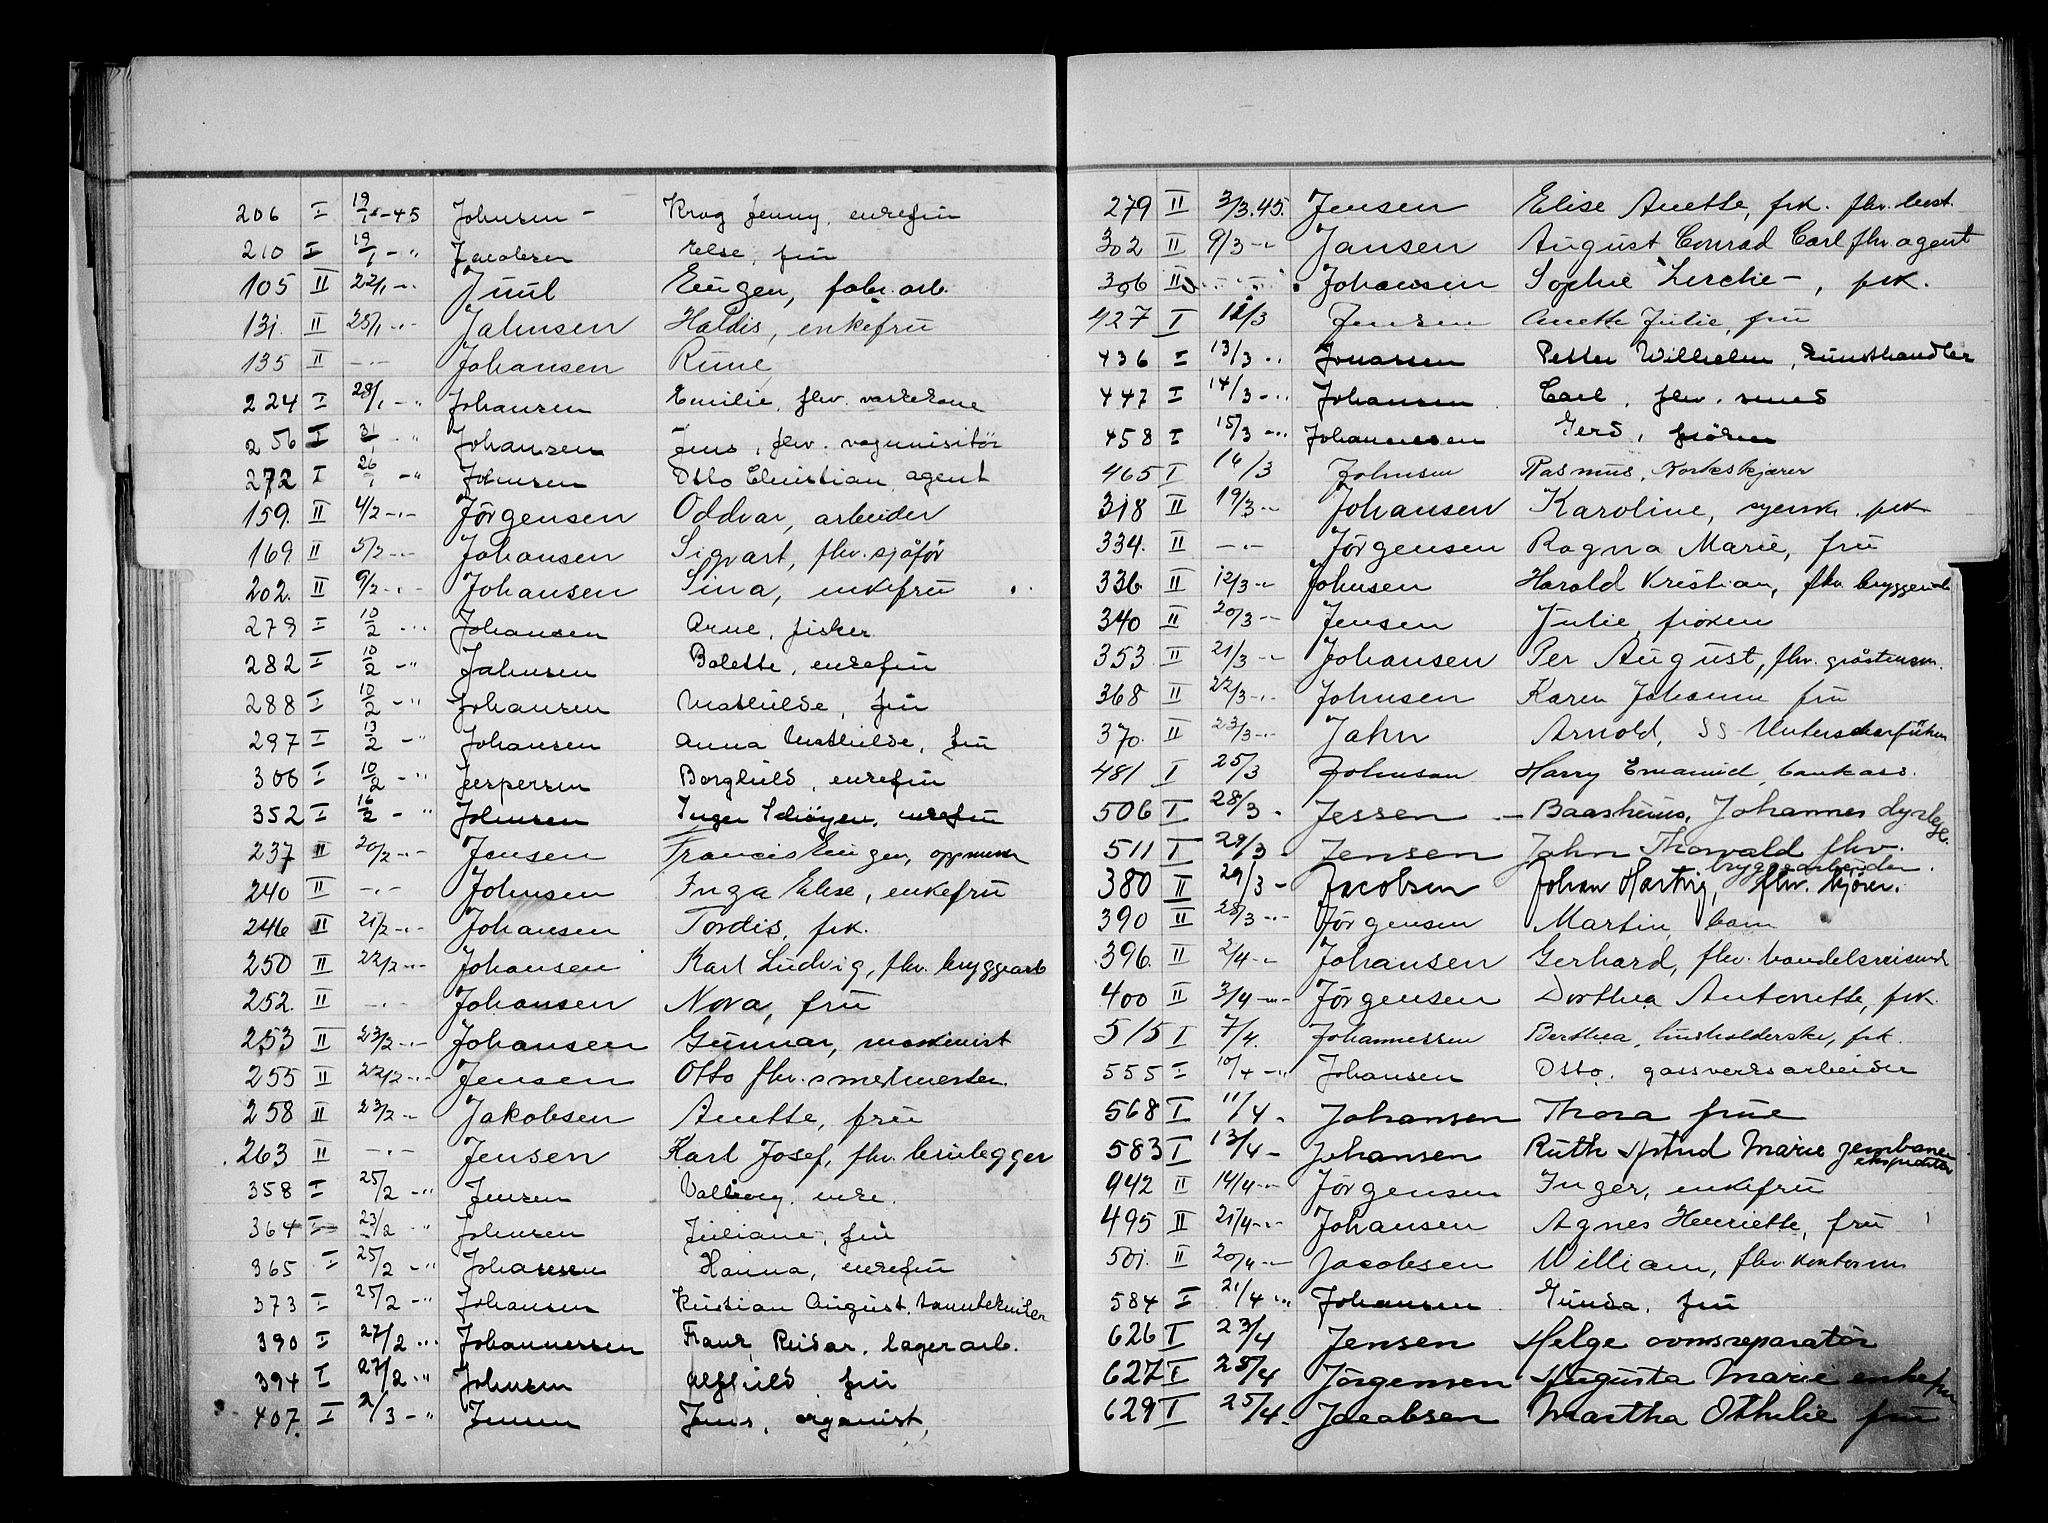 206 I 19/1-45 Johnsen - Krog Jenny, enkefru
210 I 19/1 -" Jacobsen Else, fru
105 II 22/1 -"- Juul Eugen, fabr. arb.
131. II 25/1 -"- Jahnsen Haldis, enkefru
135 II -"- Johansen Rune,
224 I 28/1 -" Johansen Emilie, fhv. vaskekone
256 I 31/1 -" Johansen Jens, fhv. rognmisitör
272 I 26/1 -" Johnsen Otto Christian, agent
159. II 4/2 -"- Jörgensen Oddvar, arbeider
169. II 5/2 -"- Johansen Sigvart, fhv. sjåför
202. II 9/2 -"- Johansen Sina, enkefru
279 I 10/2 -" Johansen Arne, fisker
282 I 10/2 -" Jahnsen Bolette, enkefru
288 I 10/2 -" Johansen Mathilde, fru
297 I 13/2 -" Johansen Anna Mathilde, fru
300 I 10/2 -" Jespersen Borghild, enkefru
352 I 16/2 -" Johnsen Inger Schöyen, enkefru
237 II 20/2 -"- Jensen Francis Eugen, oppsynsm
240 II -"- Johnsen Inga Elise, enkefru
246 II 21/2 -"- Johansen Tordis, frk.
250 II 22/2 -"- Johansen Karl Ludvig, fhv. bryggearb
252. II -"- Johansen Nora, fru
253 II 23/2 -"- Johansen Gunnar, maskinist
255 II 22/2 -"- Jensen Otto fhv. smedmester.
258 II 23/2 -"- Jakobsen Anette, fru
263 II -"- Jensen Karl Josef, fhv. brulegger
358 I 25/2 -" Jensen Valborg, enke.
364 I 23/2 -" Johnsen Juliane, fru
365 I 25/2 -" Johansen Hanna, enkefru
373 I 25/2 -" Johansen Kristian August, tanntekniker
390 I 27/2 -" Johannessen Franz Reidar, lagerarb.
394 I 27/2 -" Johnsen Alfhild, fru
407. I 2/3 -" Jensen Jens, organist,
279 II 3/3.45. Jensen Elise Anette, frk. fhv. best.
302 II 9/3 -"- Jansen August Conrad Carl fhv. agent
306 II -"- Johansen Sophie Lerche-, frk.
427 I 12/3 Jensen Anette Julie, fru
436 I 13/3 -" Jonassen Petter Wilhelm, kunsthandler
447 I 14/3 -" Johansen Carl, fhv. smed
458 I 15/3 -" Johannessen Gerd, frøken
465 I 16/3 Johnsen Rasmus, Korkskjærer
318 II 19/3 -"- Johansen Karoline, syersk. frk
334. II -"- Jörgensen Ragna Marie, fru
336 II 12/3 -"- Johnsen Harald Kristian, fhv. bryggearb
340 II 20/3 -"- Jensen Julie, frøken
353 II 21/3 -"- Johansen Per August, fhv. gråstensm.
368 II 22/3 -"- Johnsen Karen Johanne fru
370. II 23/3 -"- Jahn Arnold, SS-Unterscharführer
481 I 25/3 Johnsen Harry Emanuel, bankass.
506 I 28/3 - Jessen - Baashuus, Johannes dyrlege.
511 I 29/3 - Jensen John Thorvald fhv.
bryggearbeider.
380 II 29/3 - Jacobsen Johan Hartvig, fhv. kjörer.
390 II 28/3 -"- Jörgensen Martin, barn
396. II 2/4 -"- Johansen Gerhard, fhv. handelsreisende
400 II 3/4 -"- Jörgensen Dorthea Antonette, frk.
515 I 7/4. Johannessen Berthea, husholderske, frk.
555 I 10/4 -" Johansen Otto, gassverksarbeider
568 I 11/4 - Johansen Thora frue
583 I 13/4 - Johansen Ruth Astrid Marie jernbane
ekspeditør
942 II 14/4 -"- Jörgensen Inger, enkefru
495 II 21/4 -"- Johansen Agnes Henriette, fru
501. II 20/4 -"- Jacobsen William, fhv. kontorm
584 I 21/4 -" Johansen Gunda, fru
626 I 23/4 Jensen Helge ovnsreparatör
627 I 25/4 Jörgensen Augusta Marie enkefru
629 I 25/4 - Jacobsen Martha Othilie fru